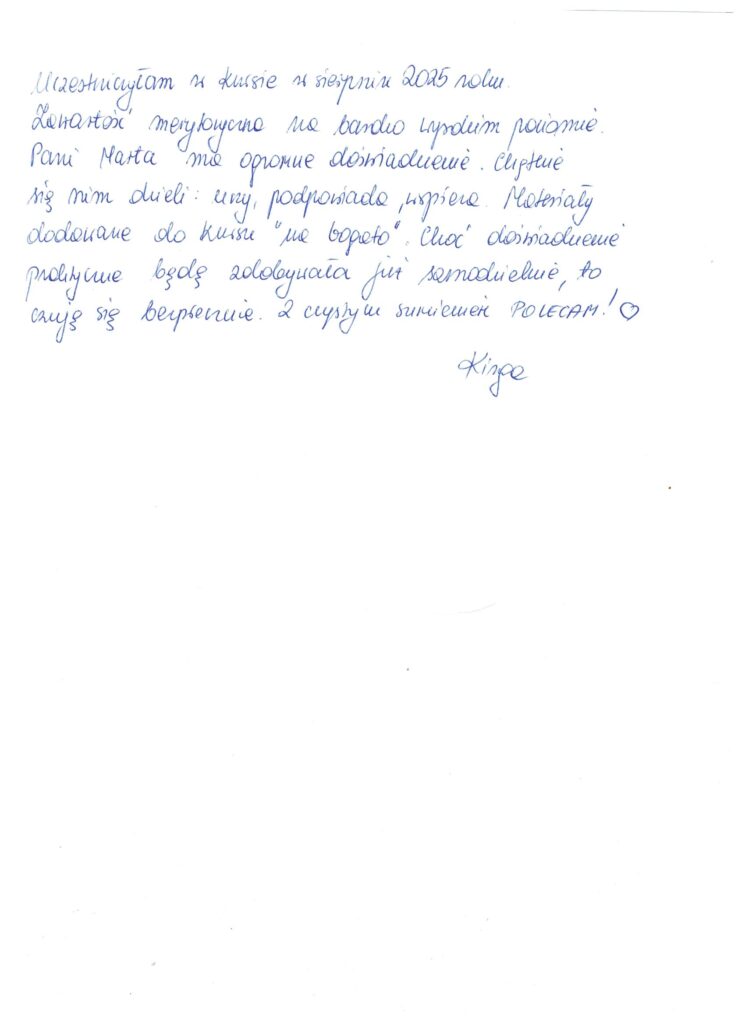 Uczestniczyłam w kursie w sierpniu 2025 roku.
Zawartość merytoryczna na bardzo wysokim poziomie.
Pani Marta ma ogromne doświadczenie. Chętnie
się nim dzieli: uczy, podpowiada, wspiera. Materiały
dodawane do kursu "na bogato". Choć doświadczenie
praktyczne będę zdobywała już samodzielnie, to
czuję się bezpiecznie. Z czystym sumieniem POLECAM! ♡
Kinga